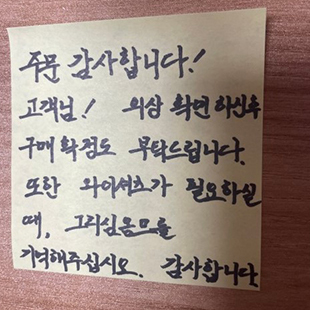 주문 감사합니다!
고객님! 의상 확면 하신후
구매 확정도 부탁드립니다.
또한 와이셔츠가 필요하실
때, 그리심플모를
기억해주십시오. 감사합니다